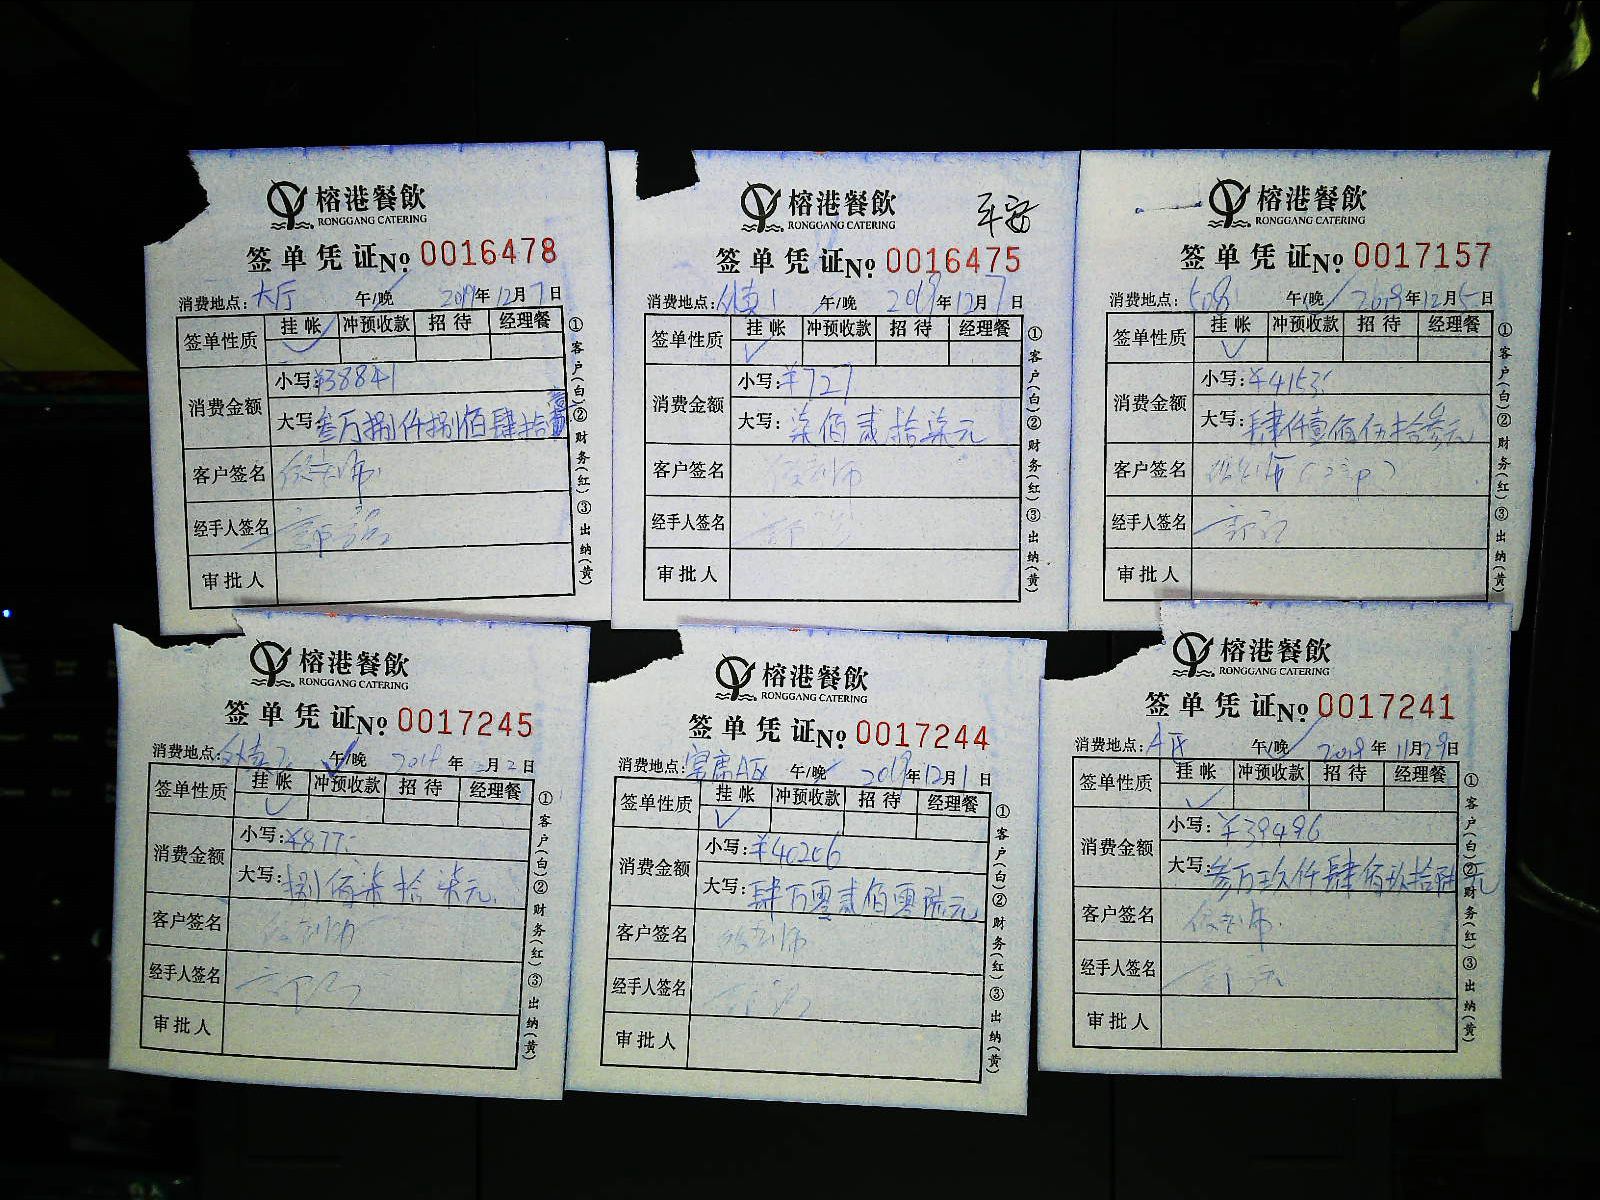 榕港餐飲
RONGGANG CATERING
签单凭证№ 0016478
消费地点:大厅 午/晚 2019年12月7日
签单性质 挂帐 冲预收款 招待 经理餐
消费金额 小写:¥38841
大写:叁万捌仟捌佰肆拾壹
客户签名
经手人签名
审批人
①客户(白)②财务(红)③出纳(黄)
榕港餐飲
RONGGANG CATERING
平安
签单凭证№ 0016475
消费地点: 午/晚 2019年12月7日
签单性质 挂帐 冲预收款 招待 经理餐
消费金额 小写:¥727
大写:柒佰贰拾柒元
客户签名
经手人签名
审批人
①客户(白)②财务(红)③出纳(黄)
榕港餐飲
RONGGANG CATERING
签单凭证№ 0017157
消费地点: 午/晚 2019年12月5日
签单性质 挂帐 冲预收款 招待 经理餐
消费金额 小写:¥4153
大写:肆仟壹佰伍拾叁元
客户签名
经手人签名
审批人
①客户(白)②财务(红)③出纳(黄)
榕港餐飲
RONGGANG CATERING
签单凭证№ 0017245
消费地点: 午/晚 2019年12月2日
签单性质 挂帐 冲预收款 招待 经理餐
消费金额 小写:¥877
大写:捌佰柒拾柒元
客户签名
经手人签名
审批人
①客户(白)②财务(红)③出纳(黄)
榕港餐飲
RONGGANG CATERING
签单凭证№ 0017244
消费地点:宴席A区 午/晚 2019年12月1日
签单性质 挂帐 冲预收款 招待 经理餐
消费金额 小写:¥40206
大写:肆万零贰佰零陆元
客户签名
经手人签名
审批人
①客户(白)②财务(红)③出纳(黄)
榕港餐飲
RONGGANG CATERING
签单凭证№ 0017241
消费地点:A区 午/晚 2019年11月29日
签单性质 挂帐 冲预收款 招待 经理餐
消费金额 小写:¥39496
大写:叁万玖仟肆佰玖拾陆元
客户签名
经手人签名
审批人
①客户(白)②财务(红)③出纳(黄)